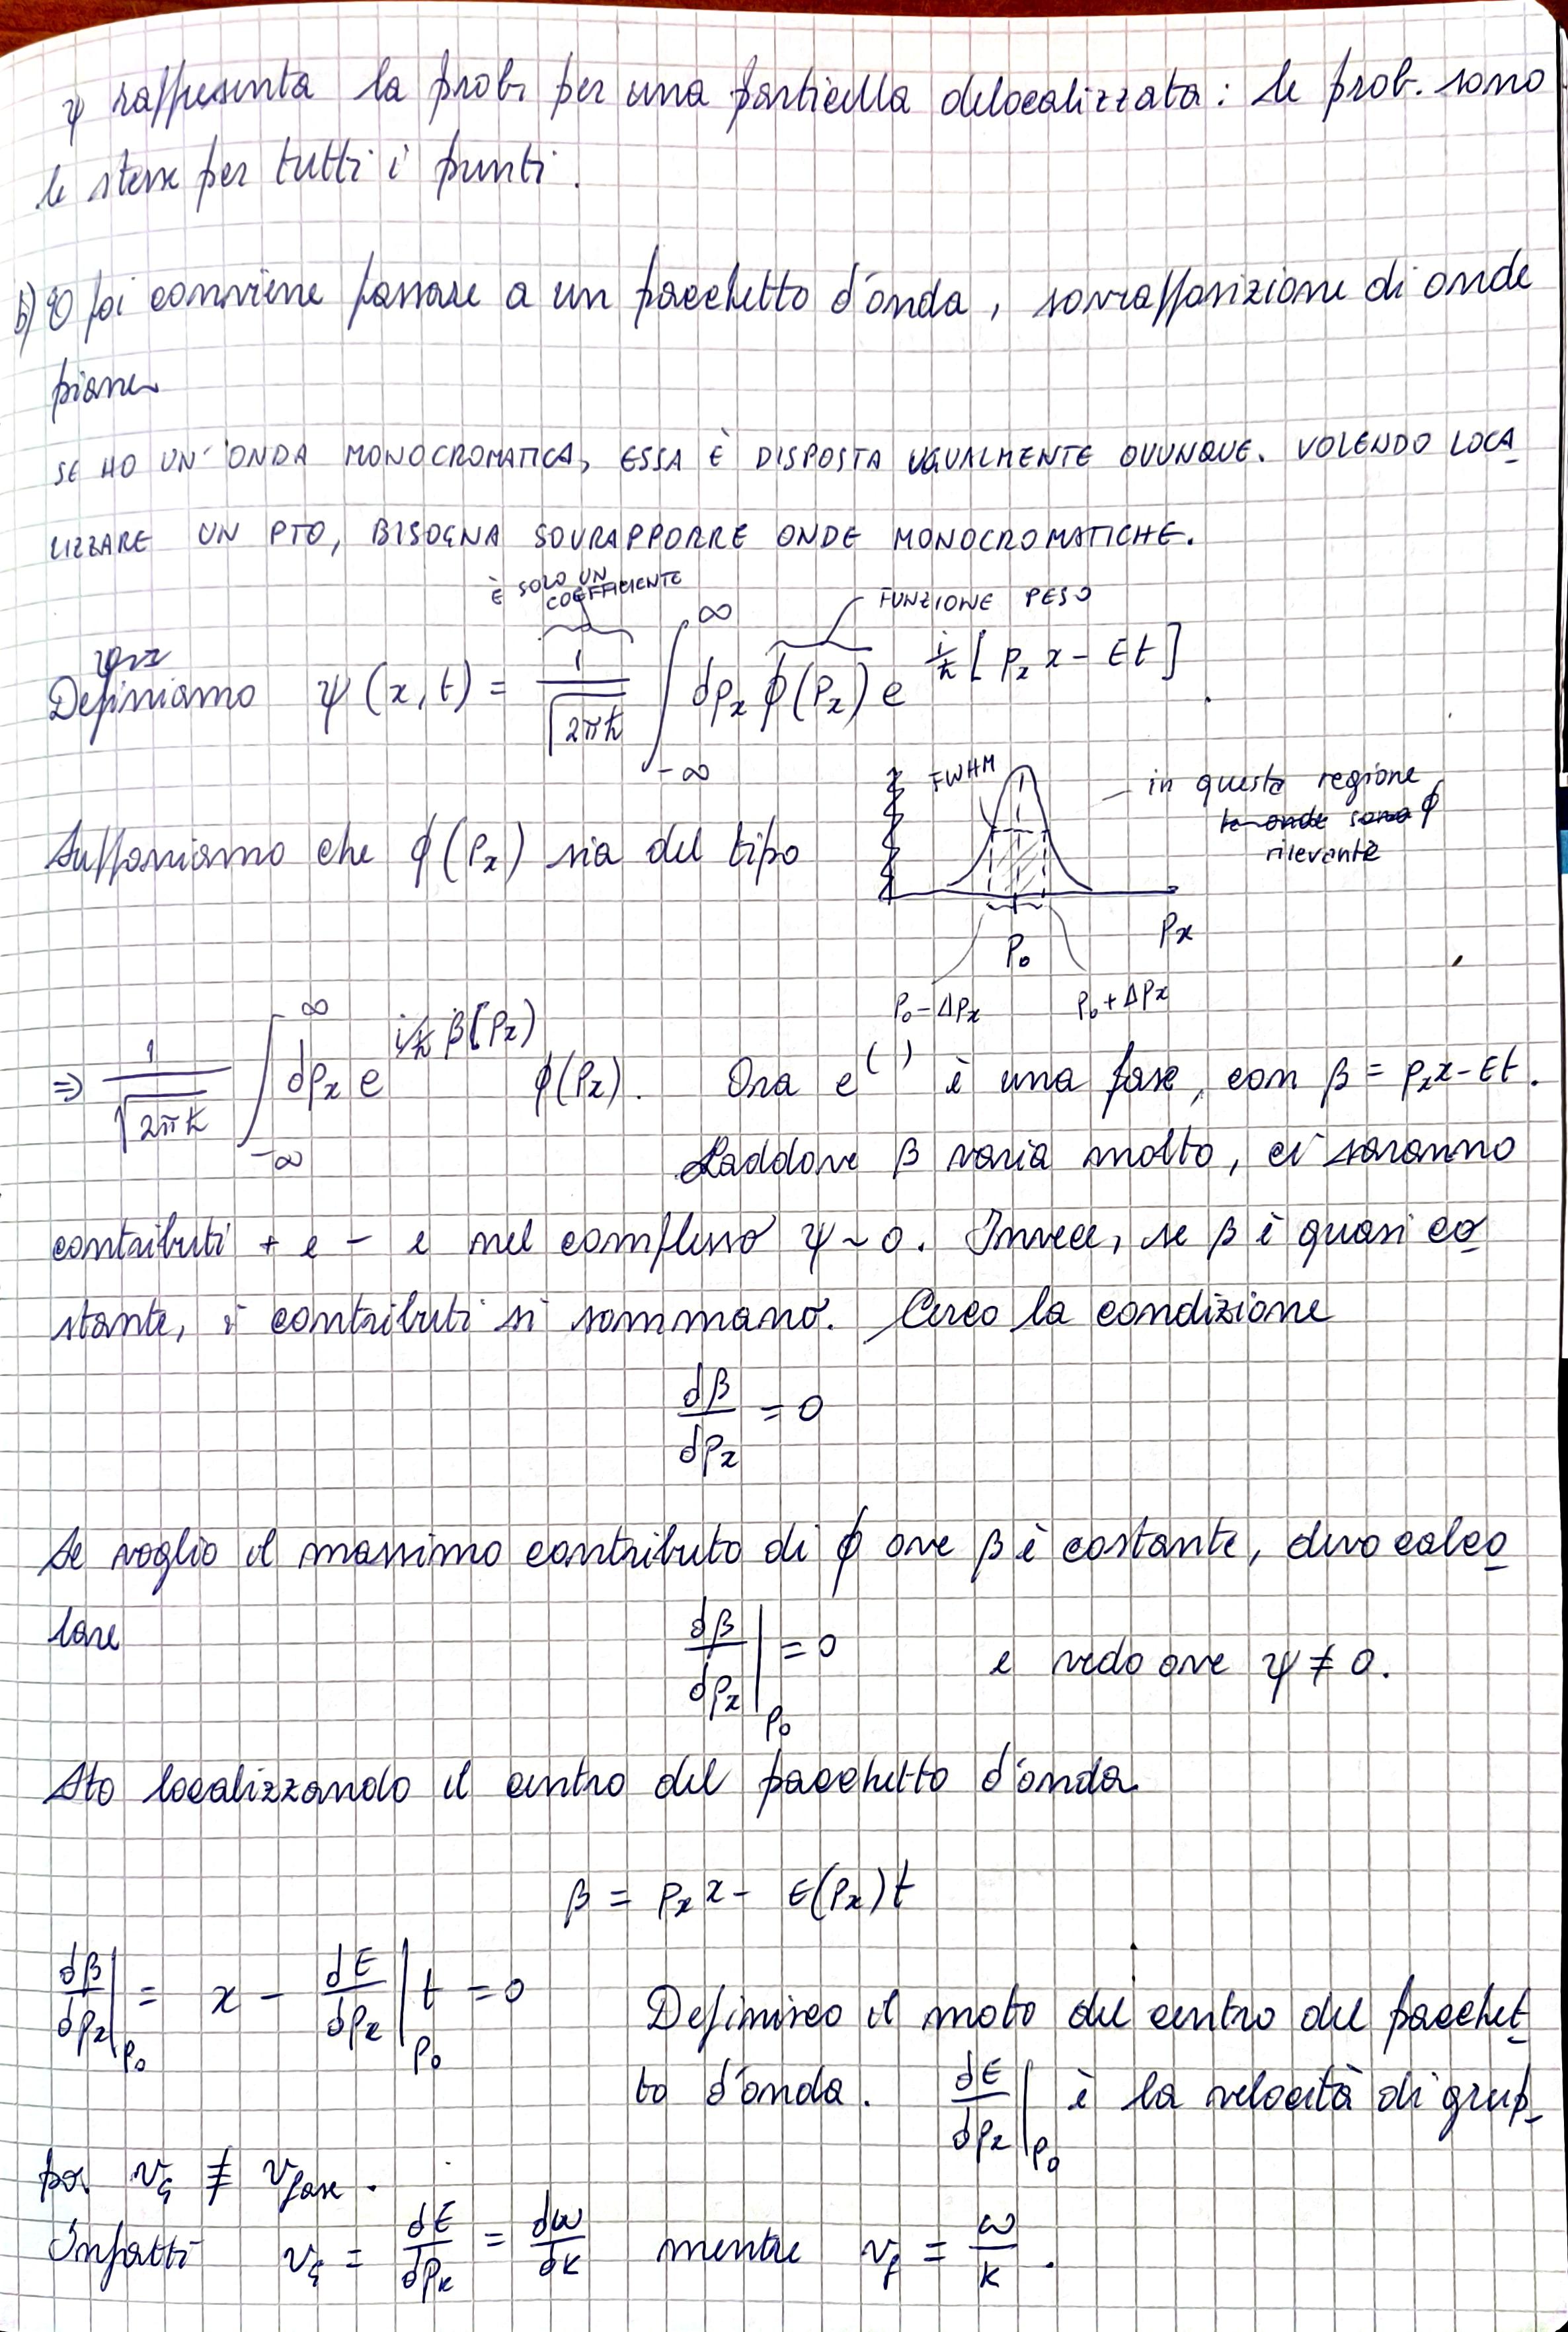 ψ rappresenta la prob. per una particella delocalizzata: le prob. sono
le stesse per tutti i punti.
b) E poi conviene passare a un pacchetto d'onda, sovrapposizione di onde
piane
SE HO UN'ONDA MONOCROMATICA, ESSA È DISPOSTA UGUALMENTE OVUNQUE. VOLENDO LOCA
LIZZARE UN PTO, BISOGNA SOVRAPPORRE ONDE MONOCROMATICHE.
È SOLO UN COEFFICIENTE
FUNZIONE PESO
Definiamo ψ(x,t) = 1/√(2πħ) ∫_{-∞}^{∞} dp_x ϕ(p_x) e^{i/ħ [p_x x - Et]}
FWHM
in questa regione
le onde sono ϕ
rilevante
Supponiamo che ϕ(p_x) sia del tipo
p_0 p_x
p_0 - Δp_x p_0 + Δp_x
⇒ 1/√(2πħ) ∫_{-∞}^{∞} dp_x e^{i/ħ β(p_x)} ϕ(p_x). Ora e^( ) è una fase, con β = p_x x - Et.
Laddove β varia molto, ci saranno
contributi + e - e nel complesso ψ ~ 0. Invece, se β è quasi co
stante, i contributi si sommano. Cerco la condizione
dβ/dp_x = 0
Se voglio il massimo contributo di ϕ ove β è costante, devo calco
lare dβ/dp_x |_{p_0} = 0 e vedo ove ψ ≠ 0.
Sto localizzando il centro del pacchetto d'onda
β = p_x x - E(p_x)t
dβ/dp_x |_{p_0} = x - dE/dp_x |_{p_0} t = 0 Definisco il moto del centro del pacchet
to d'onda. dE/dp_x |_{p_0} è la velocità di grup
po. v_g ≠ v_fase.
Infatti v_g = dE/dp_x = dω/dk mentre v_f = ω/k.